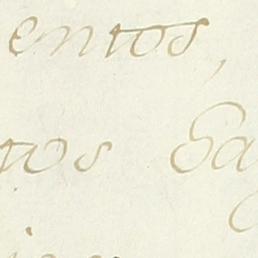 entos,
tos Sa